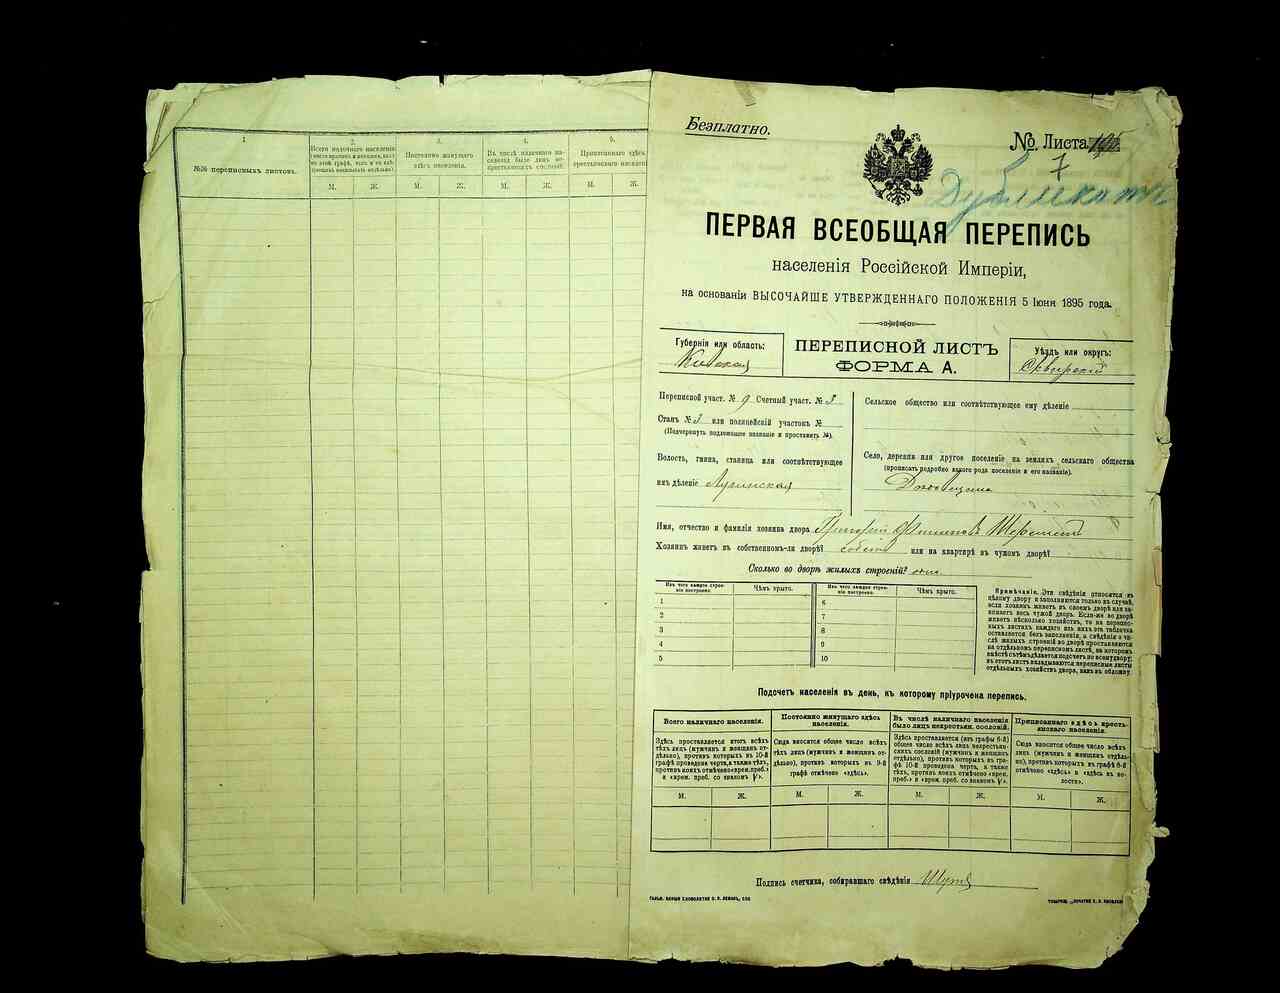 1
№№ переписныхъ листовъ.
2.
Всего наличнаго населенія
М. Ж.
3.
Постоянно живущаго
здѣсь населенія.
М. Ж.
4.
Въ числѣ наличнаго на-
селенія было лицъ не-
крестьянскихъ сословій.
М. Ж.
5.
Приписаннаго здѣсь
крестьянскаго населенія
М. Ж.
Безплатно.
№ Листа
7
Дубликатъ
ПЕРВАЯ ВСЕОБЩАЯ ПЕРЕПИСЬ
населенія Россійской Имперіи,
на основаніи ВЫСОЧАЙШЕ УТВЕРЖДЕННАГО ПОЛОЖЕНІЯ 5 Іюня 1895 года.
Губернія или область:
Кіевская
ПЕРЕПИСНОЙ ЛИСТЪ
ФОРМА А.
Уѣздъ или округъ:
Сквирскій
Переписной участ. № 9 Счетный участ. №
Станъ № или полицейскій участокъ №
(Подчеркнуть подлежащее названіе и проставить №).
Волость, гмина, станица или соотвѣтствующее
имъ дѣленіе Лучинская
Сельское общество или соотвѣтствующее ему дѣленіе
Село, деревня или другое поселеніе на земляхъ сельскаго общества
(прописать подробно какого рода поселеніе и его названіе).
Имя, отчество и фамилія хозяина двора Григорій Шереметъ
Хозяинъ живетъ въ собственномъ-ли дворѣ? собств или на квартирѣ въ чужомъ дворѣ?
Сколько во дворѣ жилыхъ строеній? одно
Изъ чего каждое строе-
ніе построено.
Чѣмъ крыто.
Изъ чего каждое строе-
ніе построено.
Чѣмъ крыто.
1 6
2 7
3 8
4 9
5 10
Примѣчаніе. Эти свѣдѣнія относятся къ
цѣлому двору и заполняются только въ случаѣ,
если хозяинъ живетъ въ своемъ дворѣ или за-
нимаетъ весь чужой дворъ. Если-же во дворѣ
живетъ нѣсколько хозяйствъ, то на перепис-
ныхъ листахъ каждаго изъ нихъ эта табличка
оставляется безъ заполненія, а свѣдѣнія о чи-
слѣ жилыхъ строеній во дворѣ проставляются
на отдѣльномъ переписномъ листѣ, на которомъ
вмѣстѣ съ тѣмъ дѣлается подсчетъ по всему двору;
въ этотъ листъ вкладываются переписные листы
отдѣльныхъ хозяйствъ двора, какъ въ обложку.
Подсчетъ населенія въ день, къ которому пріурочена перепись.
Всего наличнаго населенія.
Здѣсь проставляется итогъ всѣхъ
тѣхъ лицъ (мужчинъ и женщинъ от-
дѣльно), противъ которыхъ въ 10-й
графѣ проведена черта, а также тѣхъ,
противъ коихъ отмѣчено «врем. преб.»
и «врем. преб. со знакомъ V».
М. Ж.
Постоянно живущаго здѣсь
населенія.
Сюда вносится общее число всѣхъ
тѣхъ лицъ (мужчинъ и женщинъ от-
дѣльно), противъ которыхъ въ 9-й
графѣ отмѣчено «здѣсь».
М. Ж.
Въ числѣ наличнаго населенія
было лицъ некрестьян. сословій.
Здѣсь проставляется (изъ графы 6-й)
общее число всѣхъ лицъ некрестьян-
скихъ сословій (мужчинъ и женщинъ
отдѣльно), противъ которыхъ въ гра-
фѣ 10-й проведена черта, а также
тѣхъ, противъ коихъ отмѣчено «врем.
преб.» и «врем. преб. со знакомъ V».
М. Ж.
Приписаннаго здѣсь кресть-
янскаго населенія.
Сюда вносится общее число всѣхъ
тѣхъ лицъ (мужчинъ и женщинъ
отдѣльно), противъ которыхъ въ графѣ 8-й
отмѣчено «здѣсь» и «здѣсь въ во-
лости».
М. Ж.
Подпись счетчика, собиравшаго свѣдѣнія